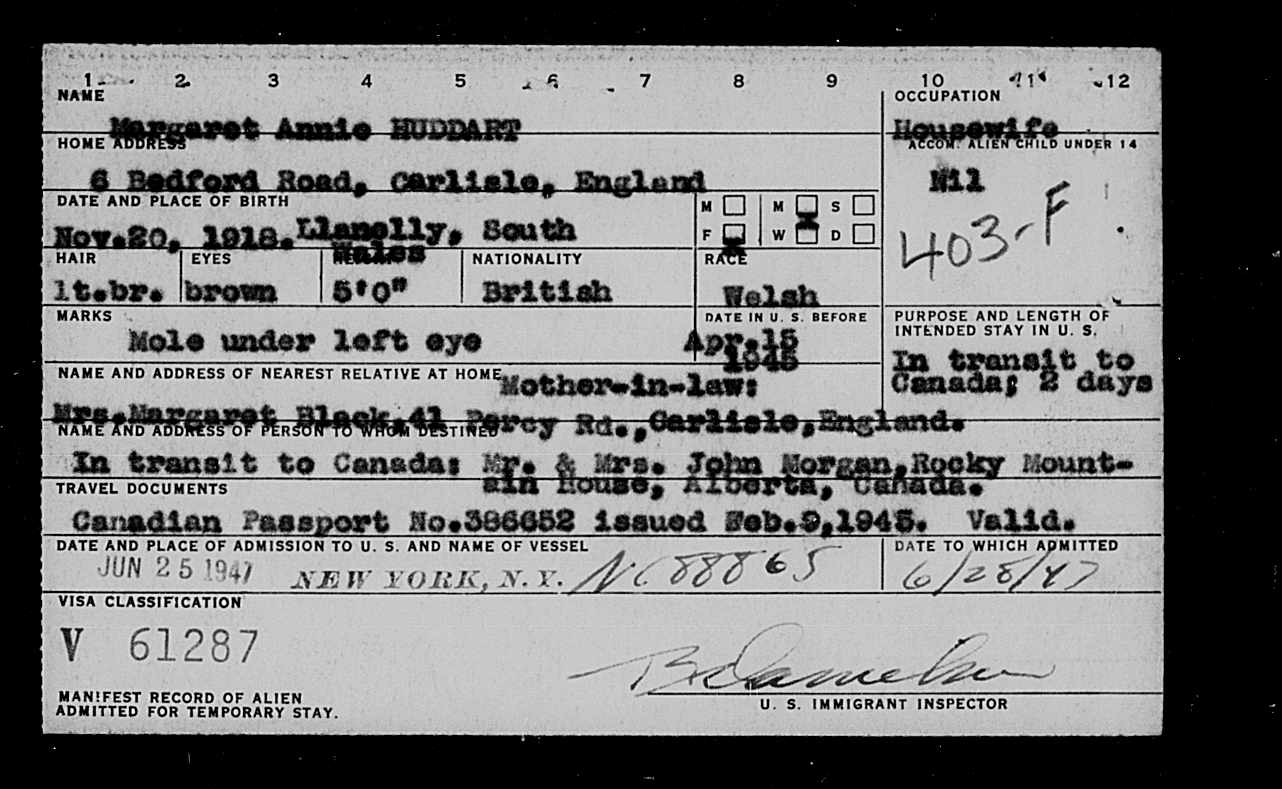 1 2 3 4 5 6 7 8 9 10 11 12
NAME OCCUPATION
Margaret Annie HUDDART Housewife
HOME ADDRESS ACCOM. ALIEN CHILD UNDER 14
6 Bedford Road, Carlisle, England Nil
DATE AND PLACE OF BIRTH M M S
403-F
Nov.20, 1918. Llanelly, South F W D
Wales
HAIR EYES NATIONALITY RACE
lt.br. brown 5'0" British Welsh
MARKS DATE IN U. S. BEFORE PURPOSE AND LENGTH OF
INTENDED STAY IN U. S.
Mole under left eye Apr.15
1945 In transit to
NAME AND ADDRESS OF NEAREST RELATIVE AT HOME Mother-in-law: Canada; 2 days
Mrs.Margaret Black,41 Percy Rd.,Carlisle,England.
NAME AND ADDRESS OF PERSON TO WHOM DESTINED
In transit to Canada: Mr. & Mrs. John Morgan,Rocky Mount-
TRAVEL DOCUMENTS ain House, Alberta, Canada.
Canadian Passport No.386652 issued Feb.9,1945. Valid.
DATE AND PLACE OF ADMISSION TO U. S. AND NAME OF VESSEL DATE TO WHICH ADMITTED
JUN 25 1947 NEW YORK, N.Y. NC 88865 6/28/47
VISA CLASSIFICATION
V 61287
MANIFEST RECORD OF ALIEN
ADMITTED FOR TEMPORARY STAY.
U. S. IMMIGRANT INSPECTOR